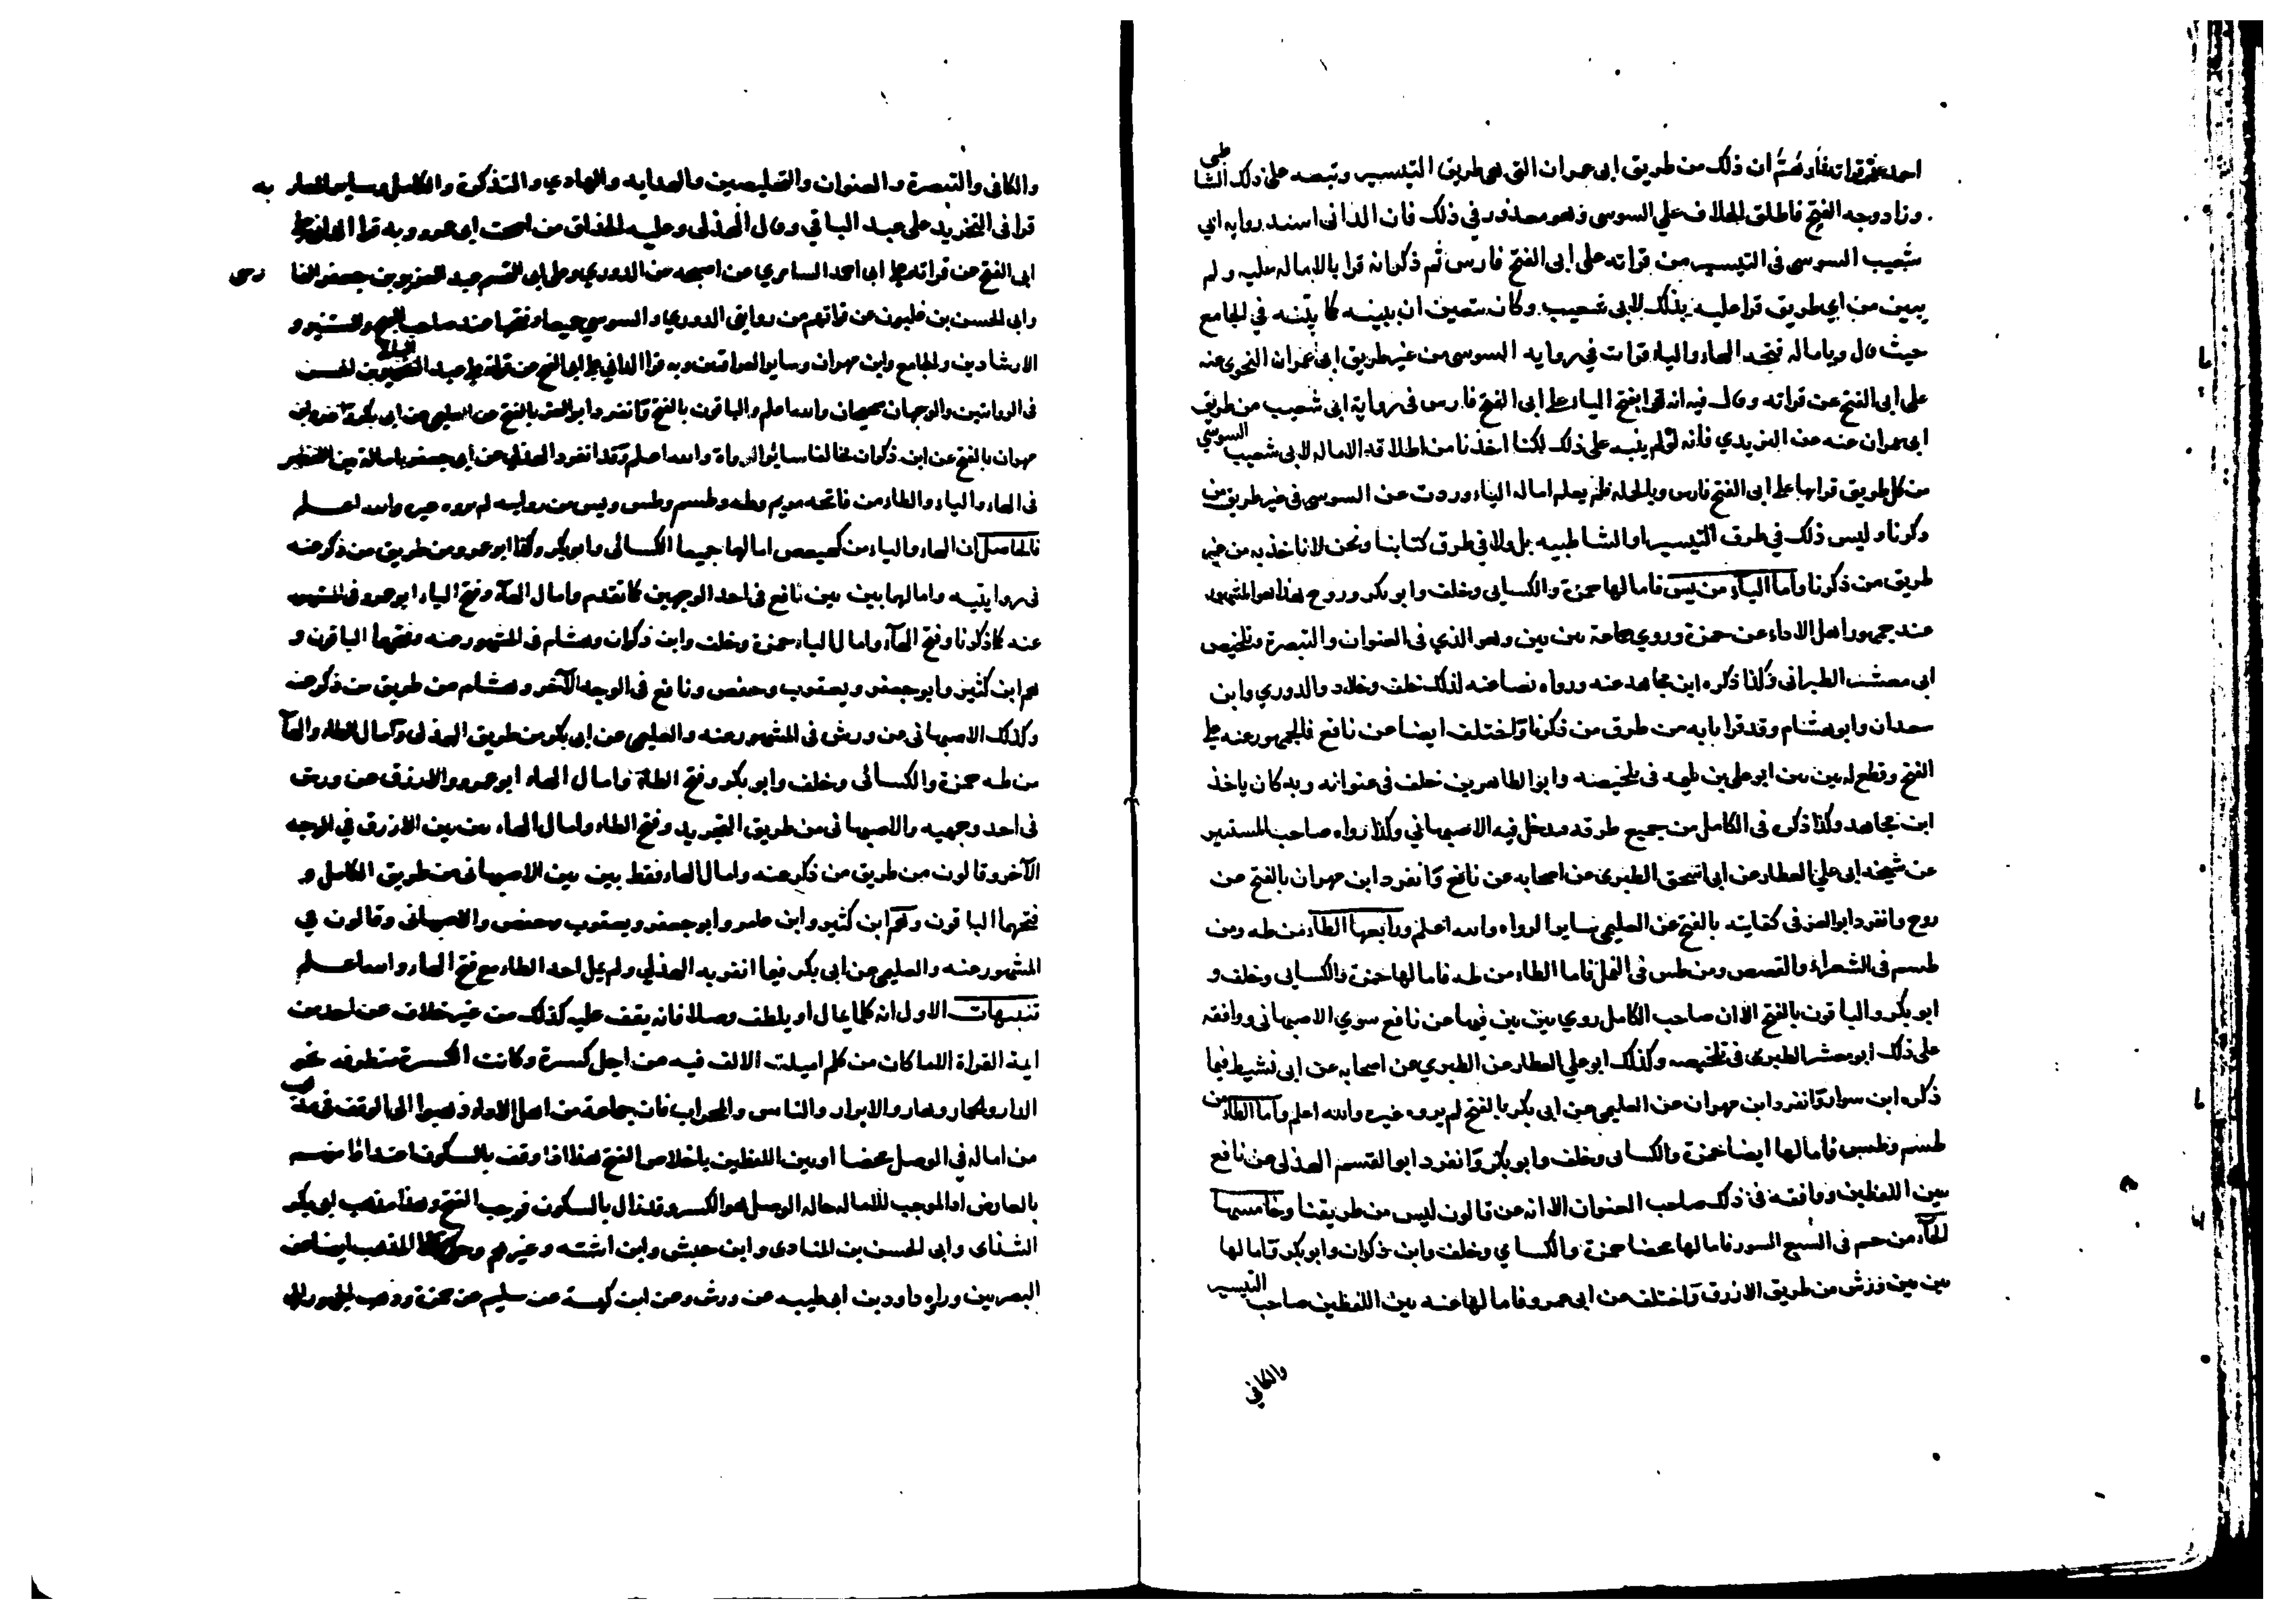 احمد عن قراته فاوهم ان ذلك من طريق ابى عمران التى هى طريق التيسير وتبعه على ذلك الشاطبى
وزاد وجه الفتح فاطلق الخلاف على السوسى وهو معذور فى ذلك فان الدانى اسند رواية ابى
شعيب السوسى فى التيسير من قراته على ابى الفتح فارس ثم ذكر انه قرا بالاماله عليه ولم
يبين من اي طريق قرا عليه بذلك لابى شعيب وكان يتعين ان يبينه كما بينه في الجامع
حيث قال وباماله فتحه الهاء والياء قرات في روايه السوسى من غير طريق ابى عمران النحوى عنه
على ابى الفتح عن قراته وقال فيه انه قرا بفتح الياء على ابى الفتح فارس فى رواية ابى شعيب من طريق
ابى عمران عنه عن اليزيدي فانه لو لم ينبه على ذلك لكنا اخذنا من اطلاقه الاماله لابى شعيب السوسي
من كل طريق قرا بها على ابى الفتح فارس وبالجمله فلم يعلم اماله الياء وردت عن السوسى فى غير طريق من
ذكرنا وليس ذلك في طرق التيسير والشاطبيه بل ولا في طرق كتابنا ونحن لا ناخذ به من غير
طريق من ذكرنا واما الياء من يس فامالها حمزة والكسايى وخلف وابو بكر وروح هذا هو المشهور
عند جمهور اهل الاداء عن حمزة وروي جماعة بين بين وهو الذي فى العنوان والتبصرة وتلخيص
ابى معشر الطبرانى وكذا ذكره ابن مجاهد عنه ورواه نصا عنه لذلك خلف وخلاد والدوري وابن
سعدان وابو هشام وقد قرا بابه من طرق من ذكرنا واختلف ايضا عن نافع فالجمهور عنه على
الفتح وقطع له بين بين ابو على بن بليمه فى تلخيصه وابو الطاهر بن خلف فى عنوانه وبه كان ياخذ
ابن مجاهد وكذا ذكره فى الكامل من جميع طرقه مدخل فيه الاصبهاني وكذا رواه صاحب المستنير
عن شيخه ابى علي العطار عن ابى اسحق الطبرى عن اصحابه عن نافع وانفرد ابن مهران بالفتح عن
روح وانفرد ابو العز فى كفايته بالفتح عن العليمى سايرا لرواه والله اعلم ورابعها الطاء من طه ومن
طسم فى الشعراء والقصص ومن طس فى النمل فاما الطاء من طه فامالها حمزة والكسايى وخلف و
ابو بكر والباقون بالفتح الا ان صاحب الكامل روي بين بين فيها عن نافع سوي الاصبهانى ووافقه
على ذلك ابو معشر الطبرى فى تلخيصه وكذلك ابو علي العطار عن الطبري عن اصحابه عن ابى نشيط فيما
ذكره ابن سوار وانفرد ابن مهران عن العليمى عن ابى بكر بالفتح لم يروه غيره والله اعلم واما الطاء من
طسم وطس فامالها ايضا حمزة والكسائى وخلف وابو بكر وانفرد ابو القسم الهذلى عن نافع
بين اللفظين ووافقه فى ذلك صاحب العنوان الا انه عن قالون ليس من طريقنا وخامسها
الحاء من حم فى السبع السور فامالها محضا حمزة والكساي وخلف وابن ذكوان وابو بكر وامالها
بين بين ورش من طريق الازرق واختلف عن ابى عمرو فامالها عنه بين اللفظين صاحب التيسير
والكافي
والكافى والتبصرة والعنوان والتلخيصين والهدايه والهادي والتذكرة والكامل وساير المغاربه وبه
قرا فى التجريد على عبد الباقي وقال الهذلى وعليه الحذاق من اصحاب ابى عمرو وبه قرا الدانى على
ابى الفتح عن قراته على ابى احمد السامري عن اصحابه عن الدوري وعلى ابى القسم عبد العزيز بن جعفر الفارسى
وابى الحسن بن غلبون عن قراتهم من روايتى الدوري والسوسي جميعا وفتحها عنه صاحب المبهج والمستنير و
الارشادين والجامع وابن مهران وساير العراقيين وبه قرا الداني على ابى الفتح عن قراته على عبد الباقى بن الحسن
فى الروايتين والوجهان صحيحان والله اعلم والباقون بالفتح وانفرد ابو العز بالفتح عن العليمى عن ابى بكر وانفرد ابن
مهران بالفتح عن ابن ذكوان مخالفا سائر الرواة والله اعلم وقد انفرد الهذلي عن ابى جعفر بامالة بين اللفظين
فى الهاء والياء والطاء من فاتحه مريم وطه وطسم وطس ويس من روايته لم يروه غيره والله اعلم
فالحاصل ان الهاء والياء من كهيعص امالها جميعا الكسائى وابو بكر وكذا ابو عمرو من طريق من ذكر عنه
فى روايتيه وامالها بين بين نافع فى احد الوجهين كما تقدم وامال الهاء وفتح الياء ابو عمرو فى المشهور
عنه كما ذكرنا وفتح الهاء وامال الياء حمزة وخلف وابن ذكوان وهشام فى المشهور عنه وفتحها الباقون و
هم ابن كثير وابو جعفر ويعقوب وحفص ونافع فى الوجه الآخر وهشام من طريق من ذكر عنه
وكذلك الاصبهانى عن ورش فى المشهور عنه والعليمى عن ابى بكر من طريق الهذلى وامال الطاء والهاء
من طه حمزة والكسائى وخلف وابو بكر وفتح الطاء وامال الهاء ابو عمرو والازرق عن ورش
فى احد وجهيه والاصبهانى من طريق التجريد وفتح الطاء وامال الهاء بين بين الازرق في الوجه
الآخر وقالون من طريق من ذكر عنه وامال الهاء فقط بين بين الاصبهانى من طريق الكامل و
فتحها الباقون وهم ابن كثير وابن عامر وابو جعفر ويعقوب وحفص والاصبهانى وقالون في
المشهور عنه والعليمى عن ابى بكر فيما انفرد به الهذلي ولم يمل احد الطاء مع فتح الهاء والله اعلم
تنبيهات الاول انه كلما يمال او يلطف وصلا فانه يوقف عليه كذلك من غير خلاف عن احد من
ايمة القراة الا ما كان من كلم اميلت الالف فيه من اجل كسرة وكانت الكسرة متطرفه نحو
الدار والحمار وهار والابرار والناس والمحراب فان جماعة من اهل الاداء ذهبوا الى الوقف فى مذهب
من اماله في الوصل محضا او بين اللفظين باخلاص الفتح هذا اذا وقف بالسكون اعتدادا منهم
بالعارض اذ الموجب للاماله حاله الوصل هو الكسر وقد زال بالسكون فوجب الفتح وهذا مذهب ابى بكر
الشذاى وابى الحسن بن المنادى وابن حبش وابن اشته وغيرهم وحكى هذا المذهب ايضا عن
البصريين ورواه داود بن ابى طيبه عن ورش وعن ابن كيسة عن سليم عن حمزة وذهب الجمهور الى